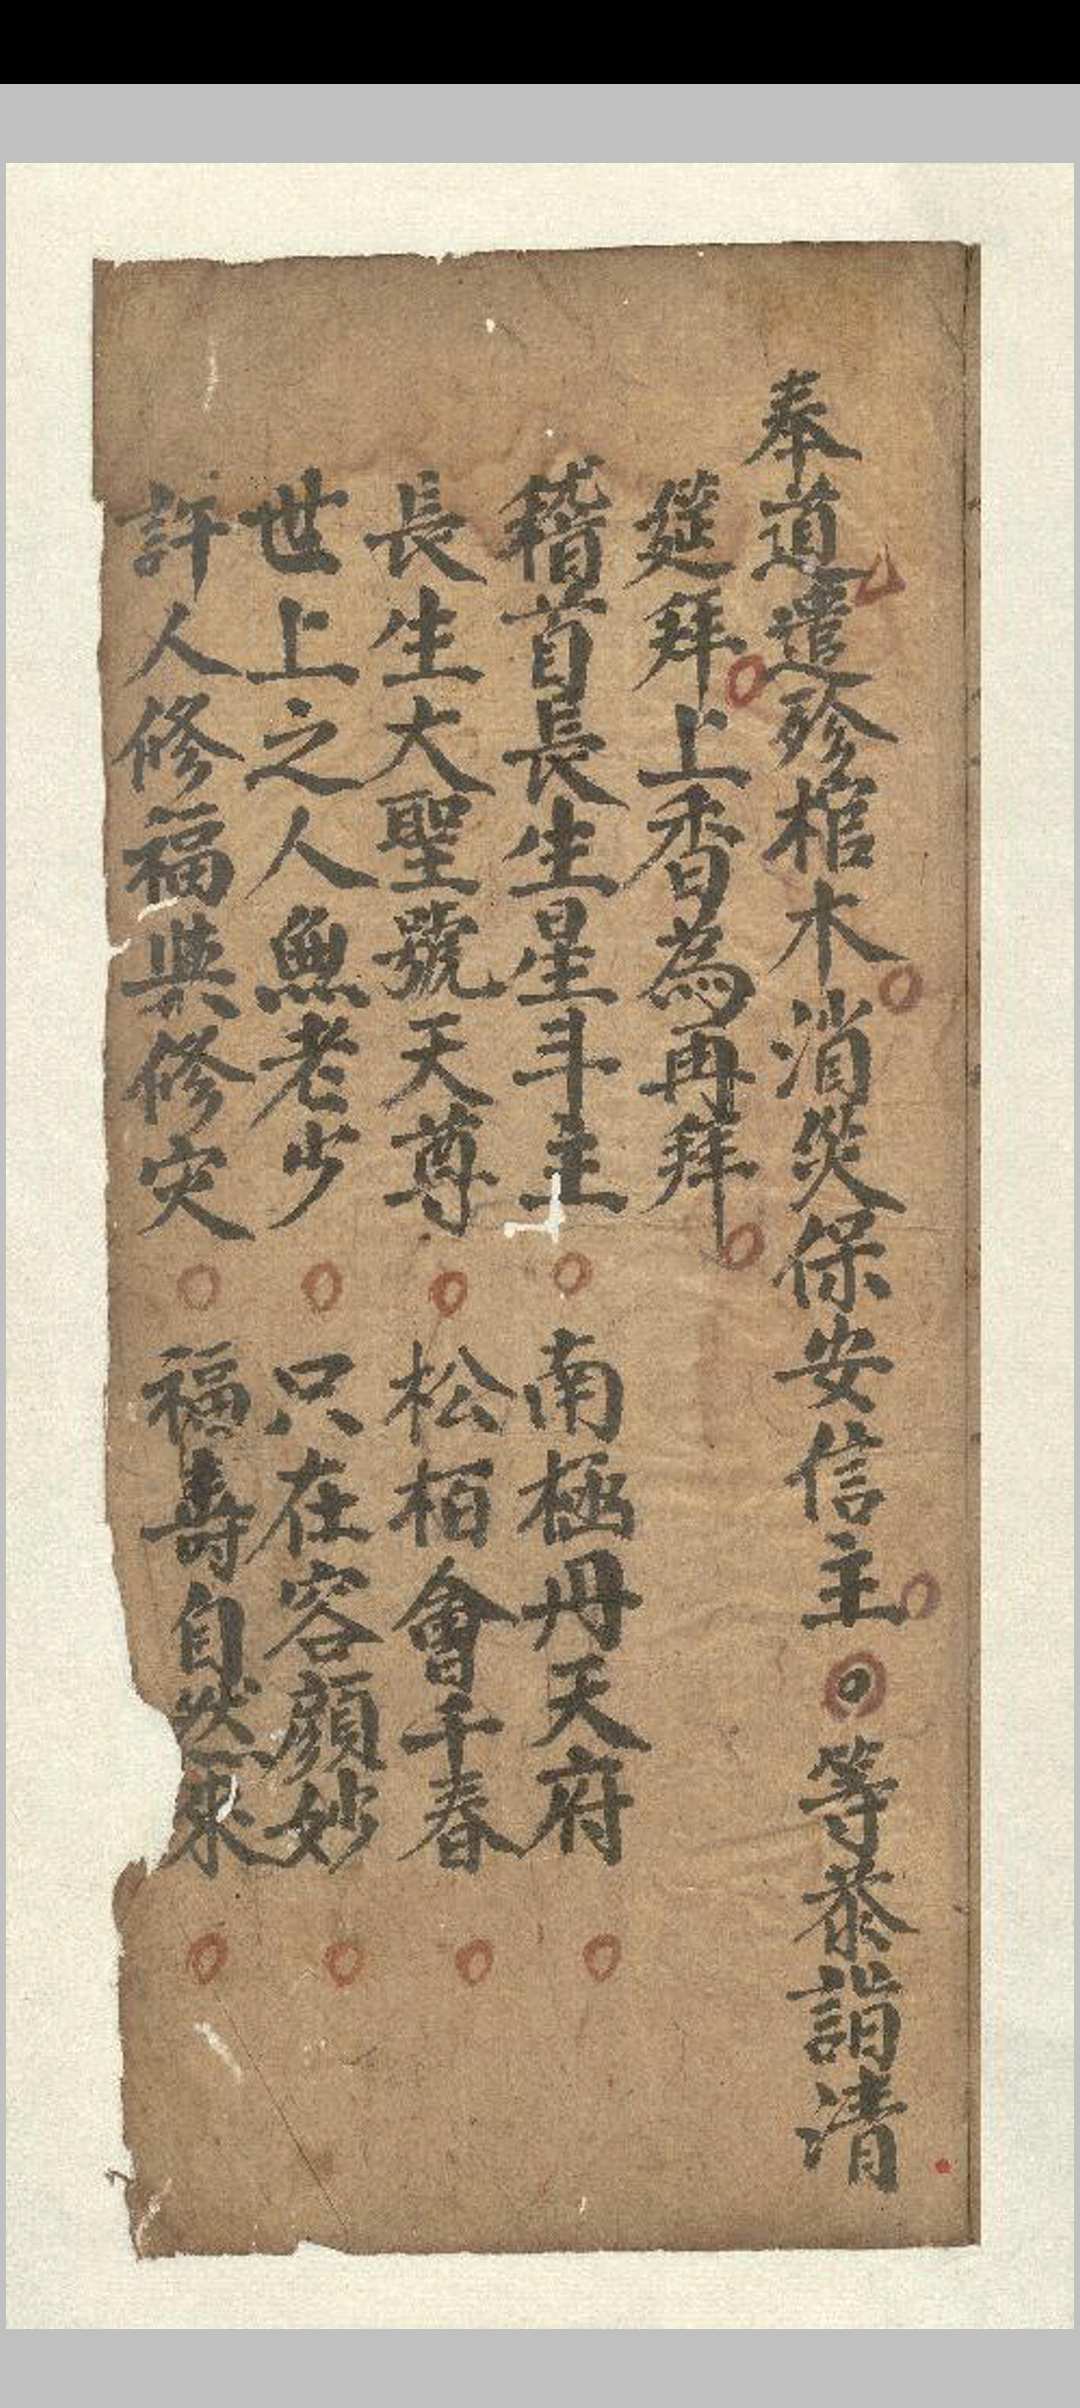 奉道遣殄棺木消災保安信主等恭詣清
筵拜上香為再拜
稽首長生星斗主 南極丹天府
長生大聖號天尊 松栢會千春
世上之人無老少 只在容顔妙
許人修福與修灾 福壽自然來